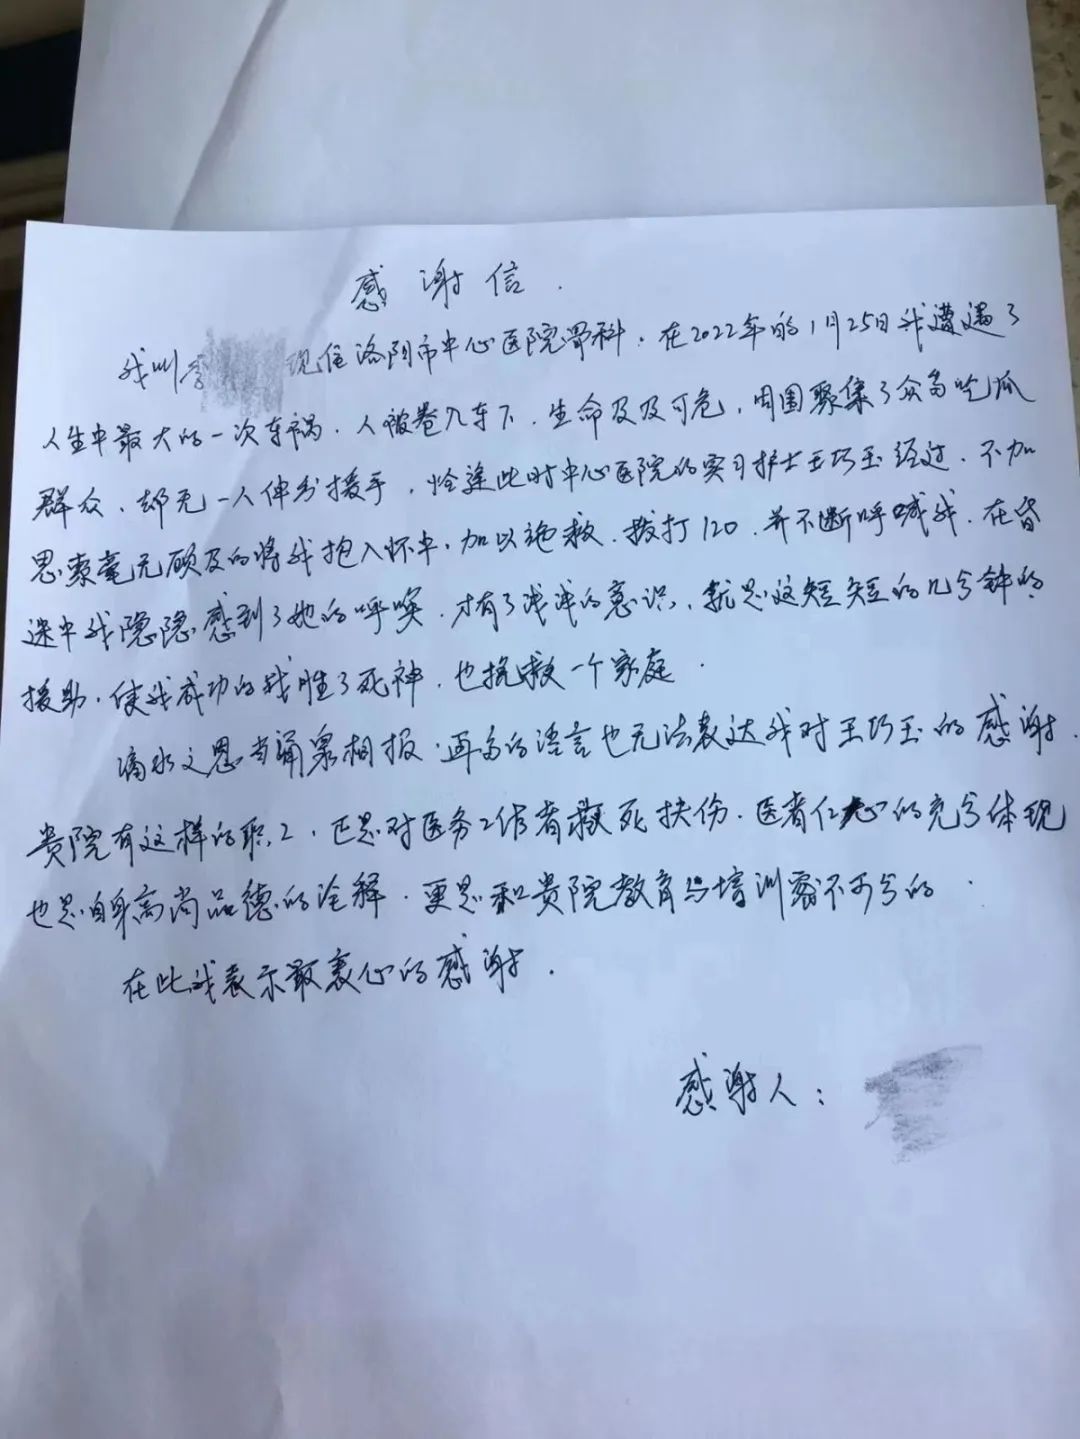 感谢信.
我叫李 现住洛阳市中心医院骨科.在2022年的1月25日我遭遇了
人生中最大的一次车祸.人被卷入车下.生命及及可危,周围聚集了众多吃瓜
群众、却无一人伸出援手,恰逢此时中心医院的实习护士王巧玉经过、不加
思索毫无顾及的将我抱入怀中.加以施救.拨打120.并不断呼喊我.在昏
迷中我隐隐感到了她的呼唤.才有了浅浅的意识、就是这短短的几分钟的
援助.使我成功的战胜了死神.也挽救一个家庭.
滴水之恩当涌泉相报.再多的语言也无法表达我对王巧玉的感谢.
贵院有这样的职工.正是对医务工作者救死扶伤.医者仁心的充分体现
也是自身高尚品德的诠释.更是和贵院教育与培训密不可分的.
在此我表示最衷心的感谢.
感谢人: